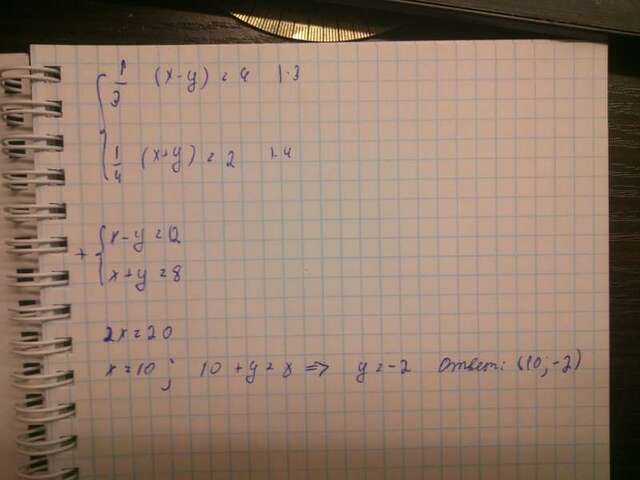 1/3 (x-y) = 4 |·3
1/4 (x+y) = 2 |·4
+ { x-y=12
x+y=8
2x=20
x=10; 10+y=8 => y=-2 Ответ: (10;-2)